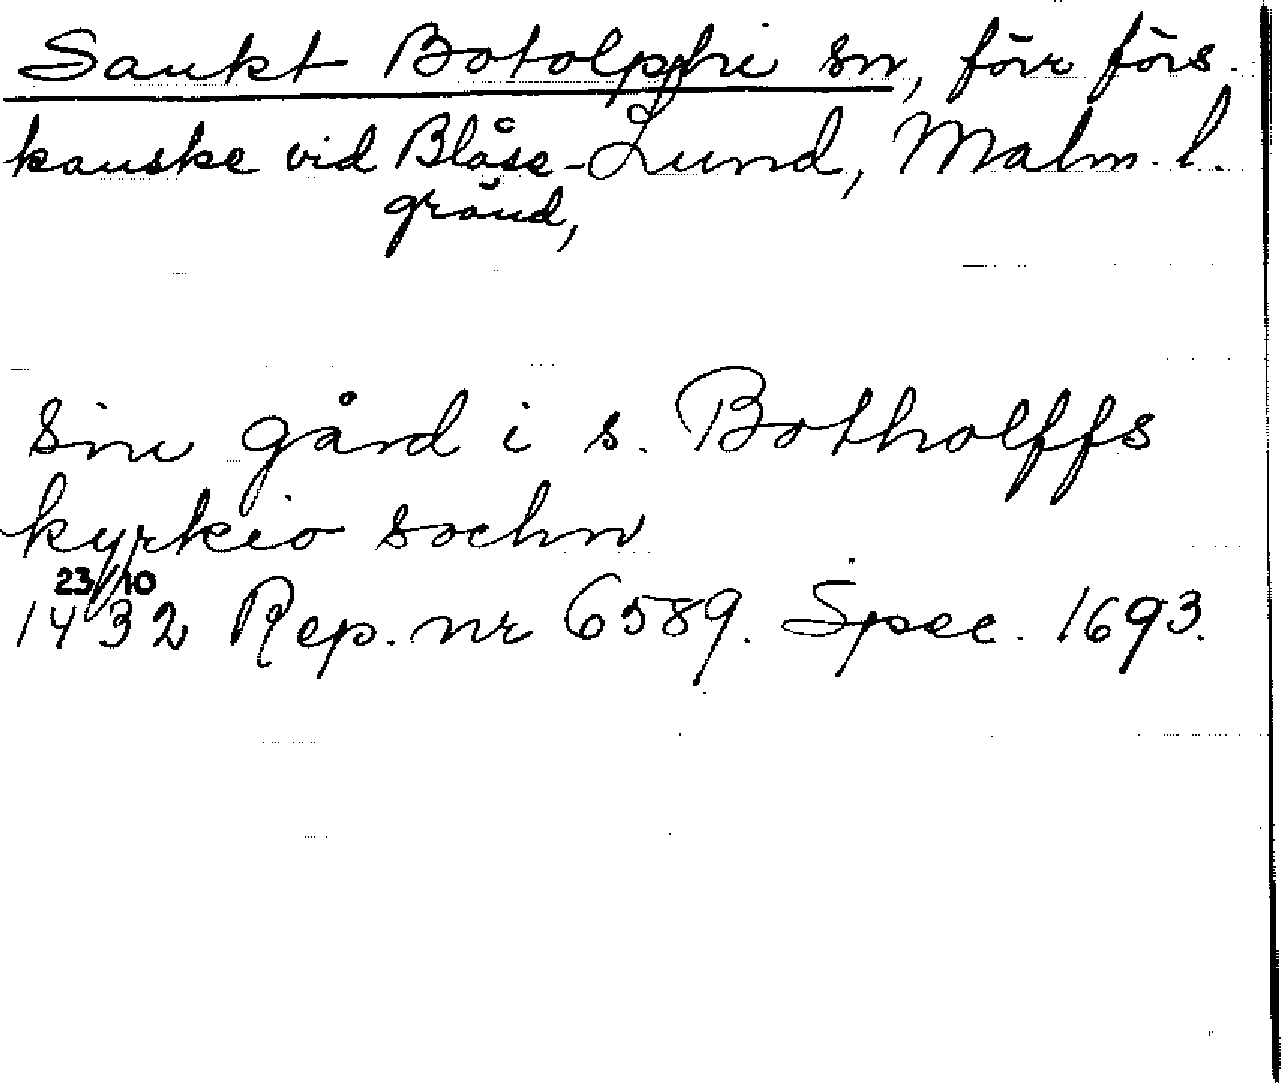 Sankt Botolphi sn, förr förs.
kanske vid Blåse- Lund, Malm. l.
gränd,
sin gård i s. Botholffs
kyrkio sochn
23/10
1432 Rep. nr 6589. Spec. 1693.